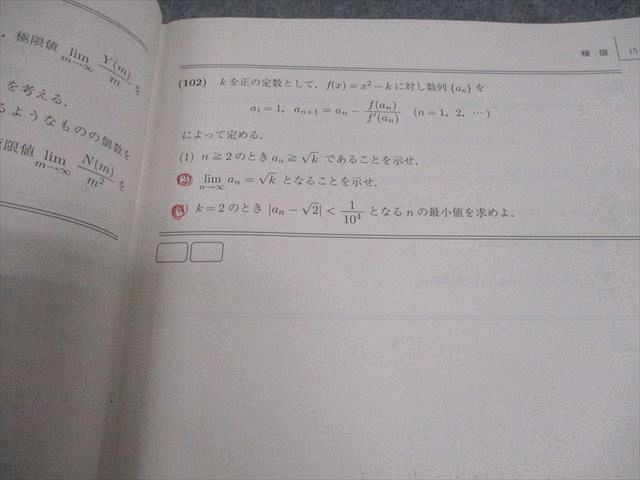 極限値 lim_{m→∞} Y(m)/m を
を考える.
るようなものの個数を
限値 lim_{m→∞} N(m)/m² を
極 限 15
(102) k を正の定数として, f(x) = x² − k に対し数列 {aₙ} を
a₁ = 1, aₙ₊₁ = aₙ − f(aₙ)/f′(aₙ) (n = 1, 2, ⋯)
によって定める.
(1) n ≧ 2 のとき aₙ ≧ √k であることを示せ.
(2) lim_{n→∞} aₙ = √k となることを示せ.
(3) k = 2 のとき |aₙ − √2| < 1/10⁴ となる n の最小値を求めよ.